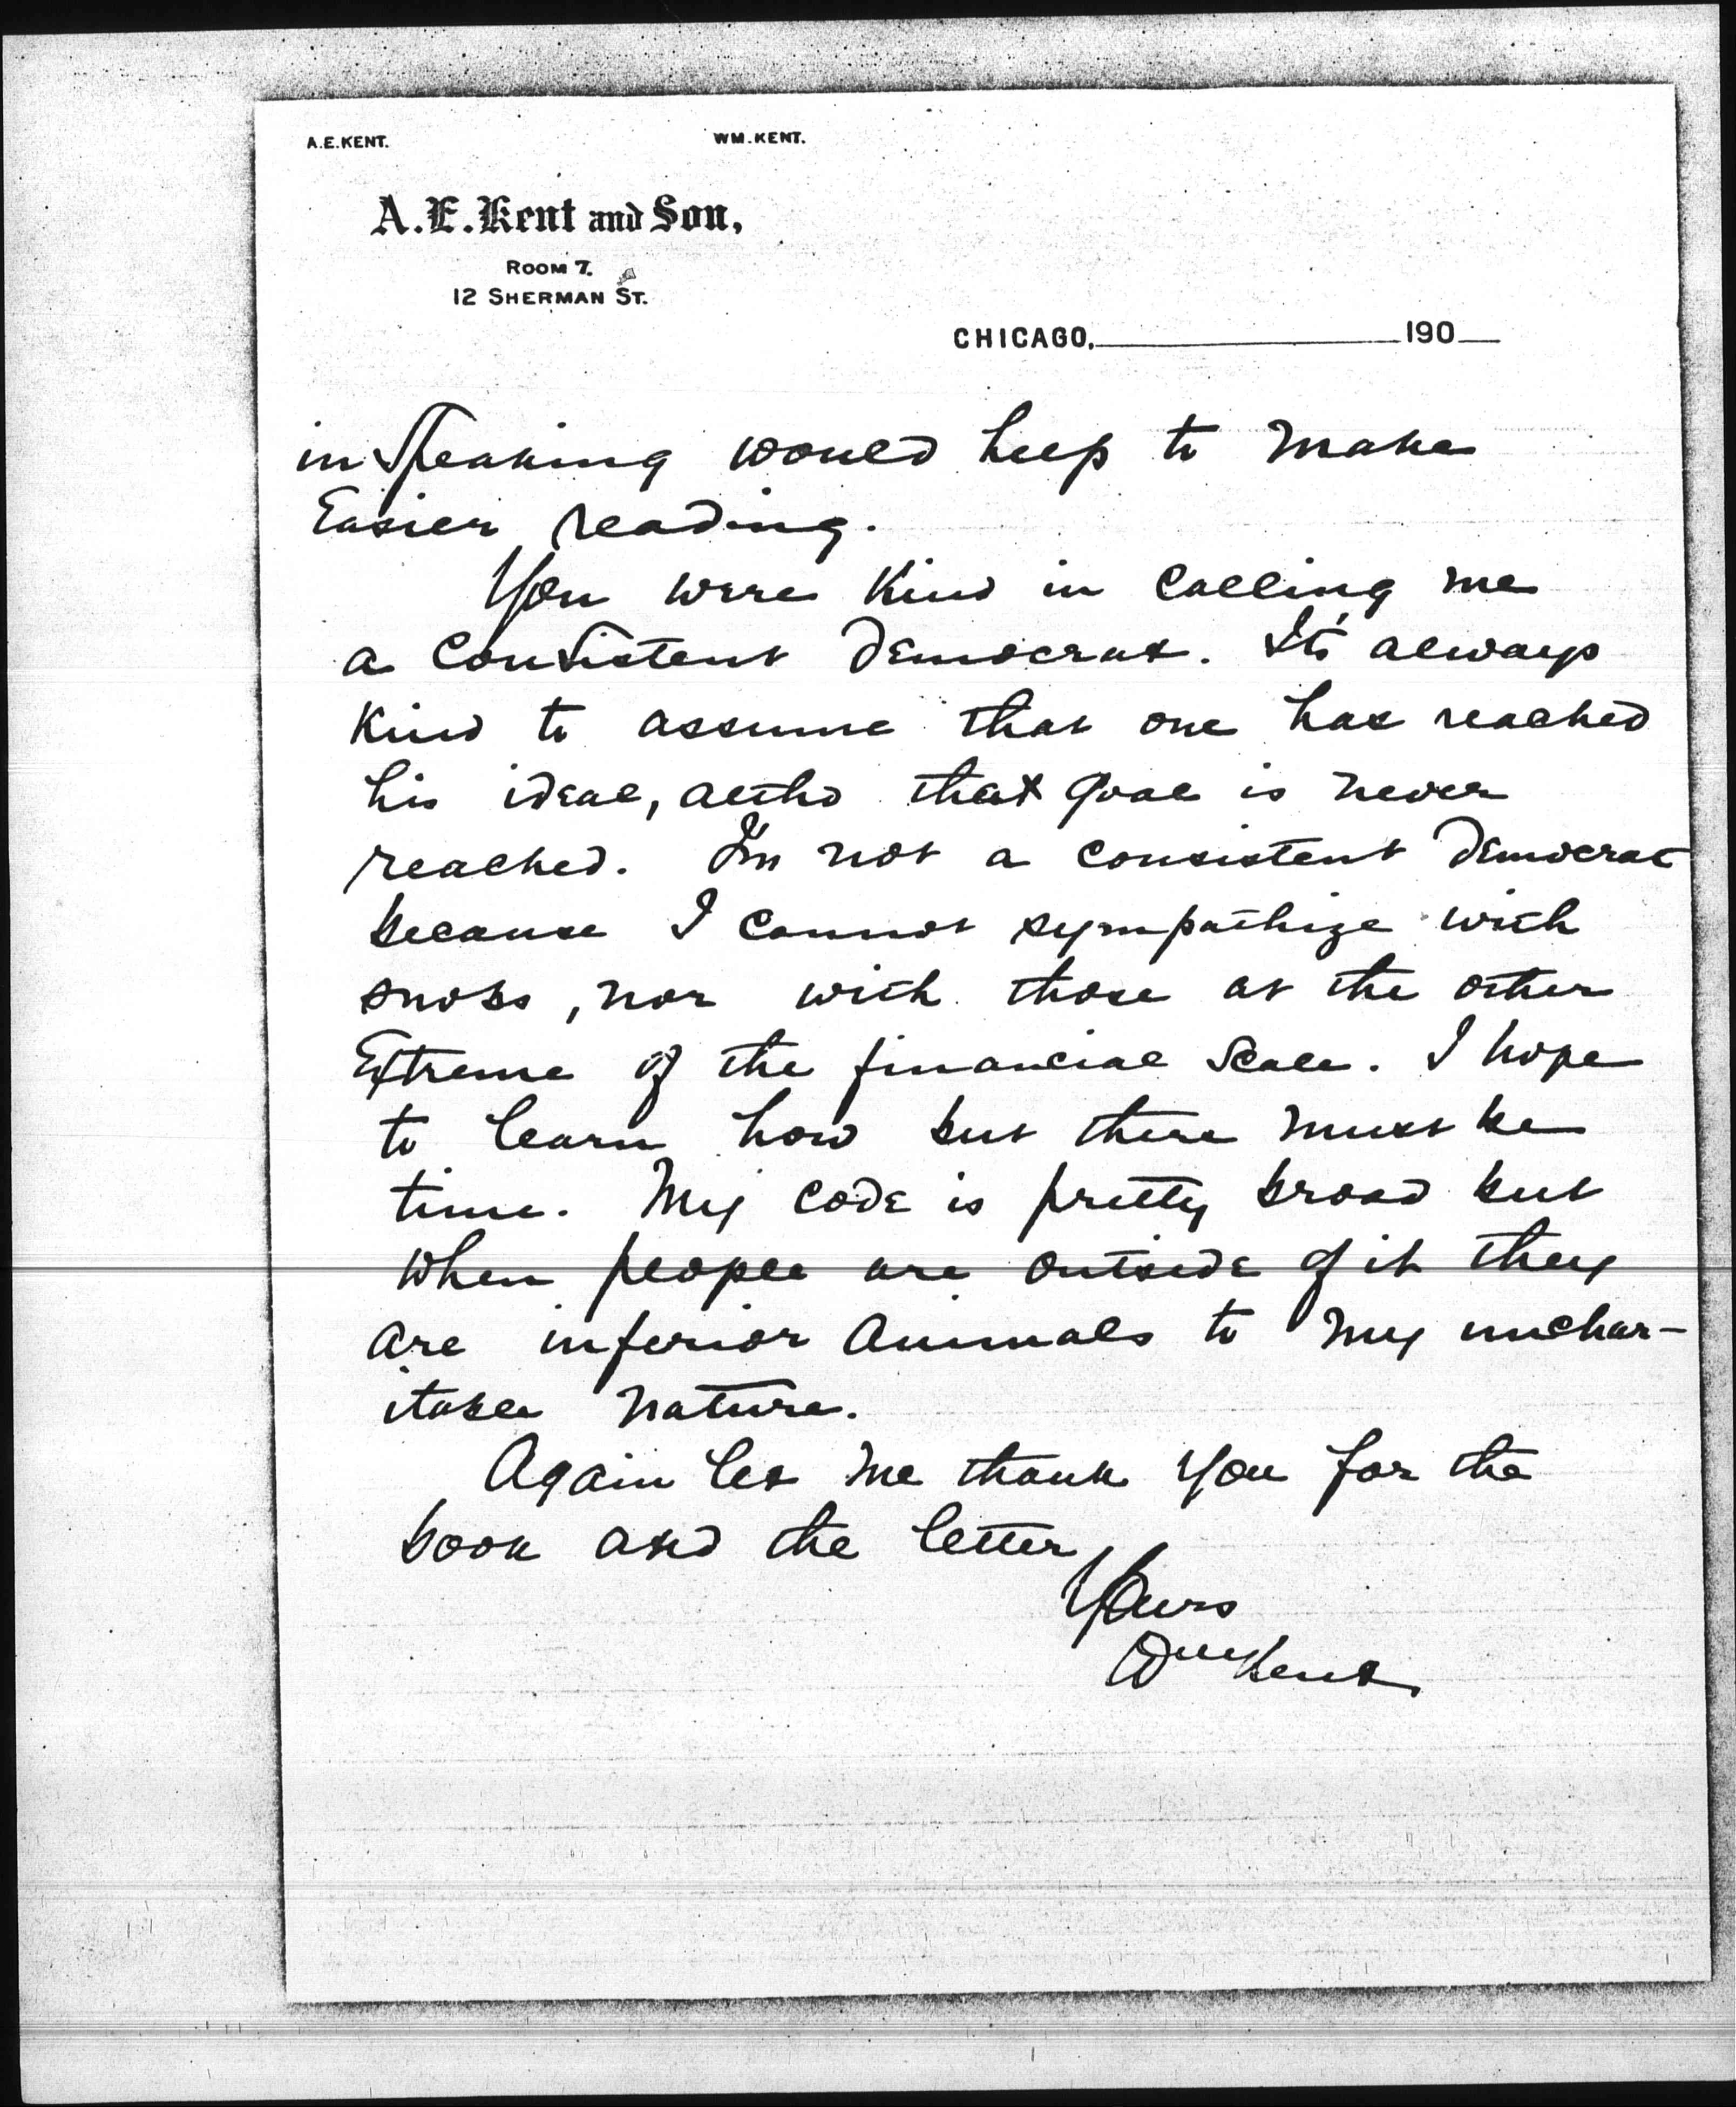 A.E.KENT. WM.KENT.
A.E.Kent and Son,
ROOM 7.
12 SHERMAN ST.
CHICAGO, 190
in speaking would help to make
Easier reading.
You were kind in calling me
a consistent Democrat. It's always
kind to assume that one has reached
his ideal, altho that goal is never
reached. I'm not a consistent Democrat
because I cannot sympathize with
snobs, nor with those at the other
Extreme of the financial scale. I hope
to learn how but there must be
time. My code is pretty broad but
when people are outside of it they
are inferior animals to my unchar-
itable nature.
Again let me thank you for the
book and the letter
Yours
Wm Kent